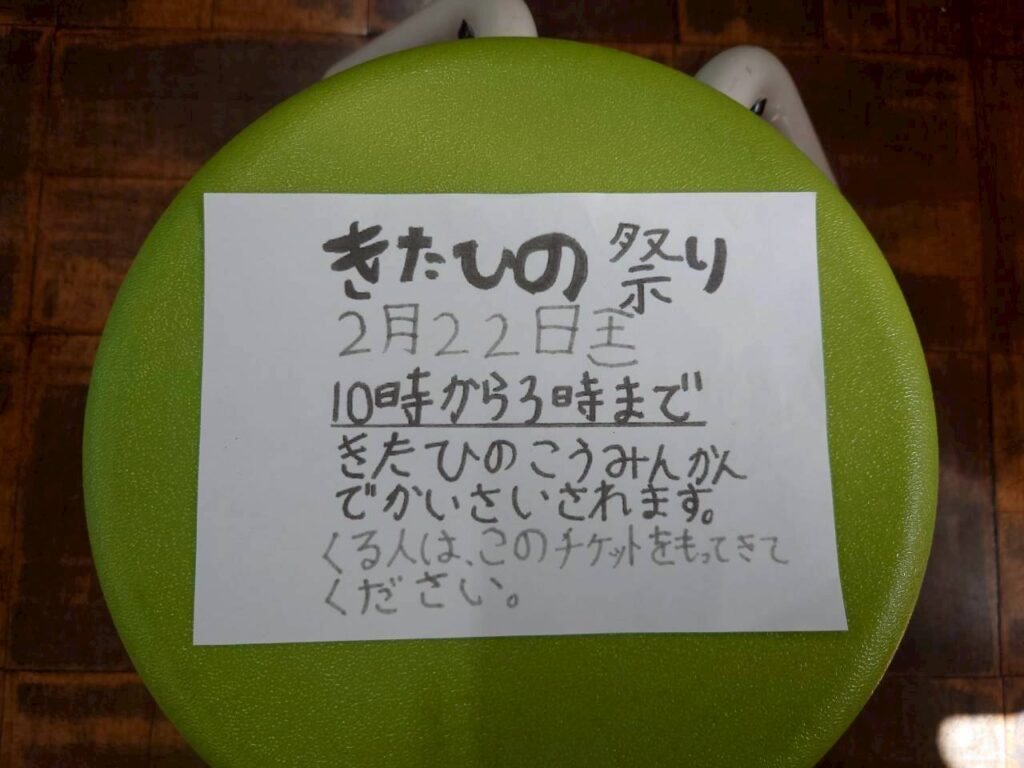 きたひの祭り
2月22日(土)
10時から3時まで
きたひのこうみんかん
でかいさいされます。
くる人は、このチケットをもってきて
ください。